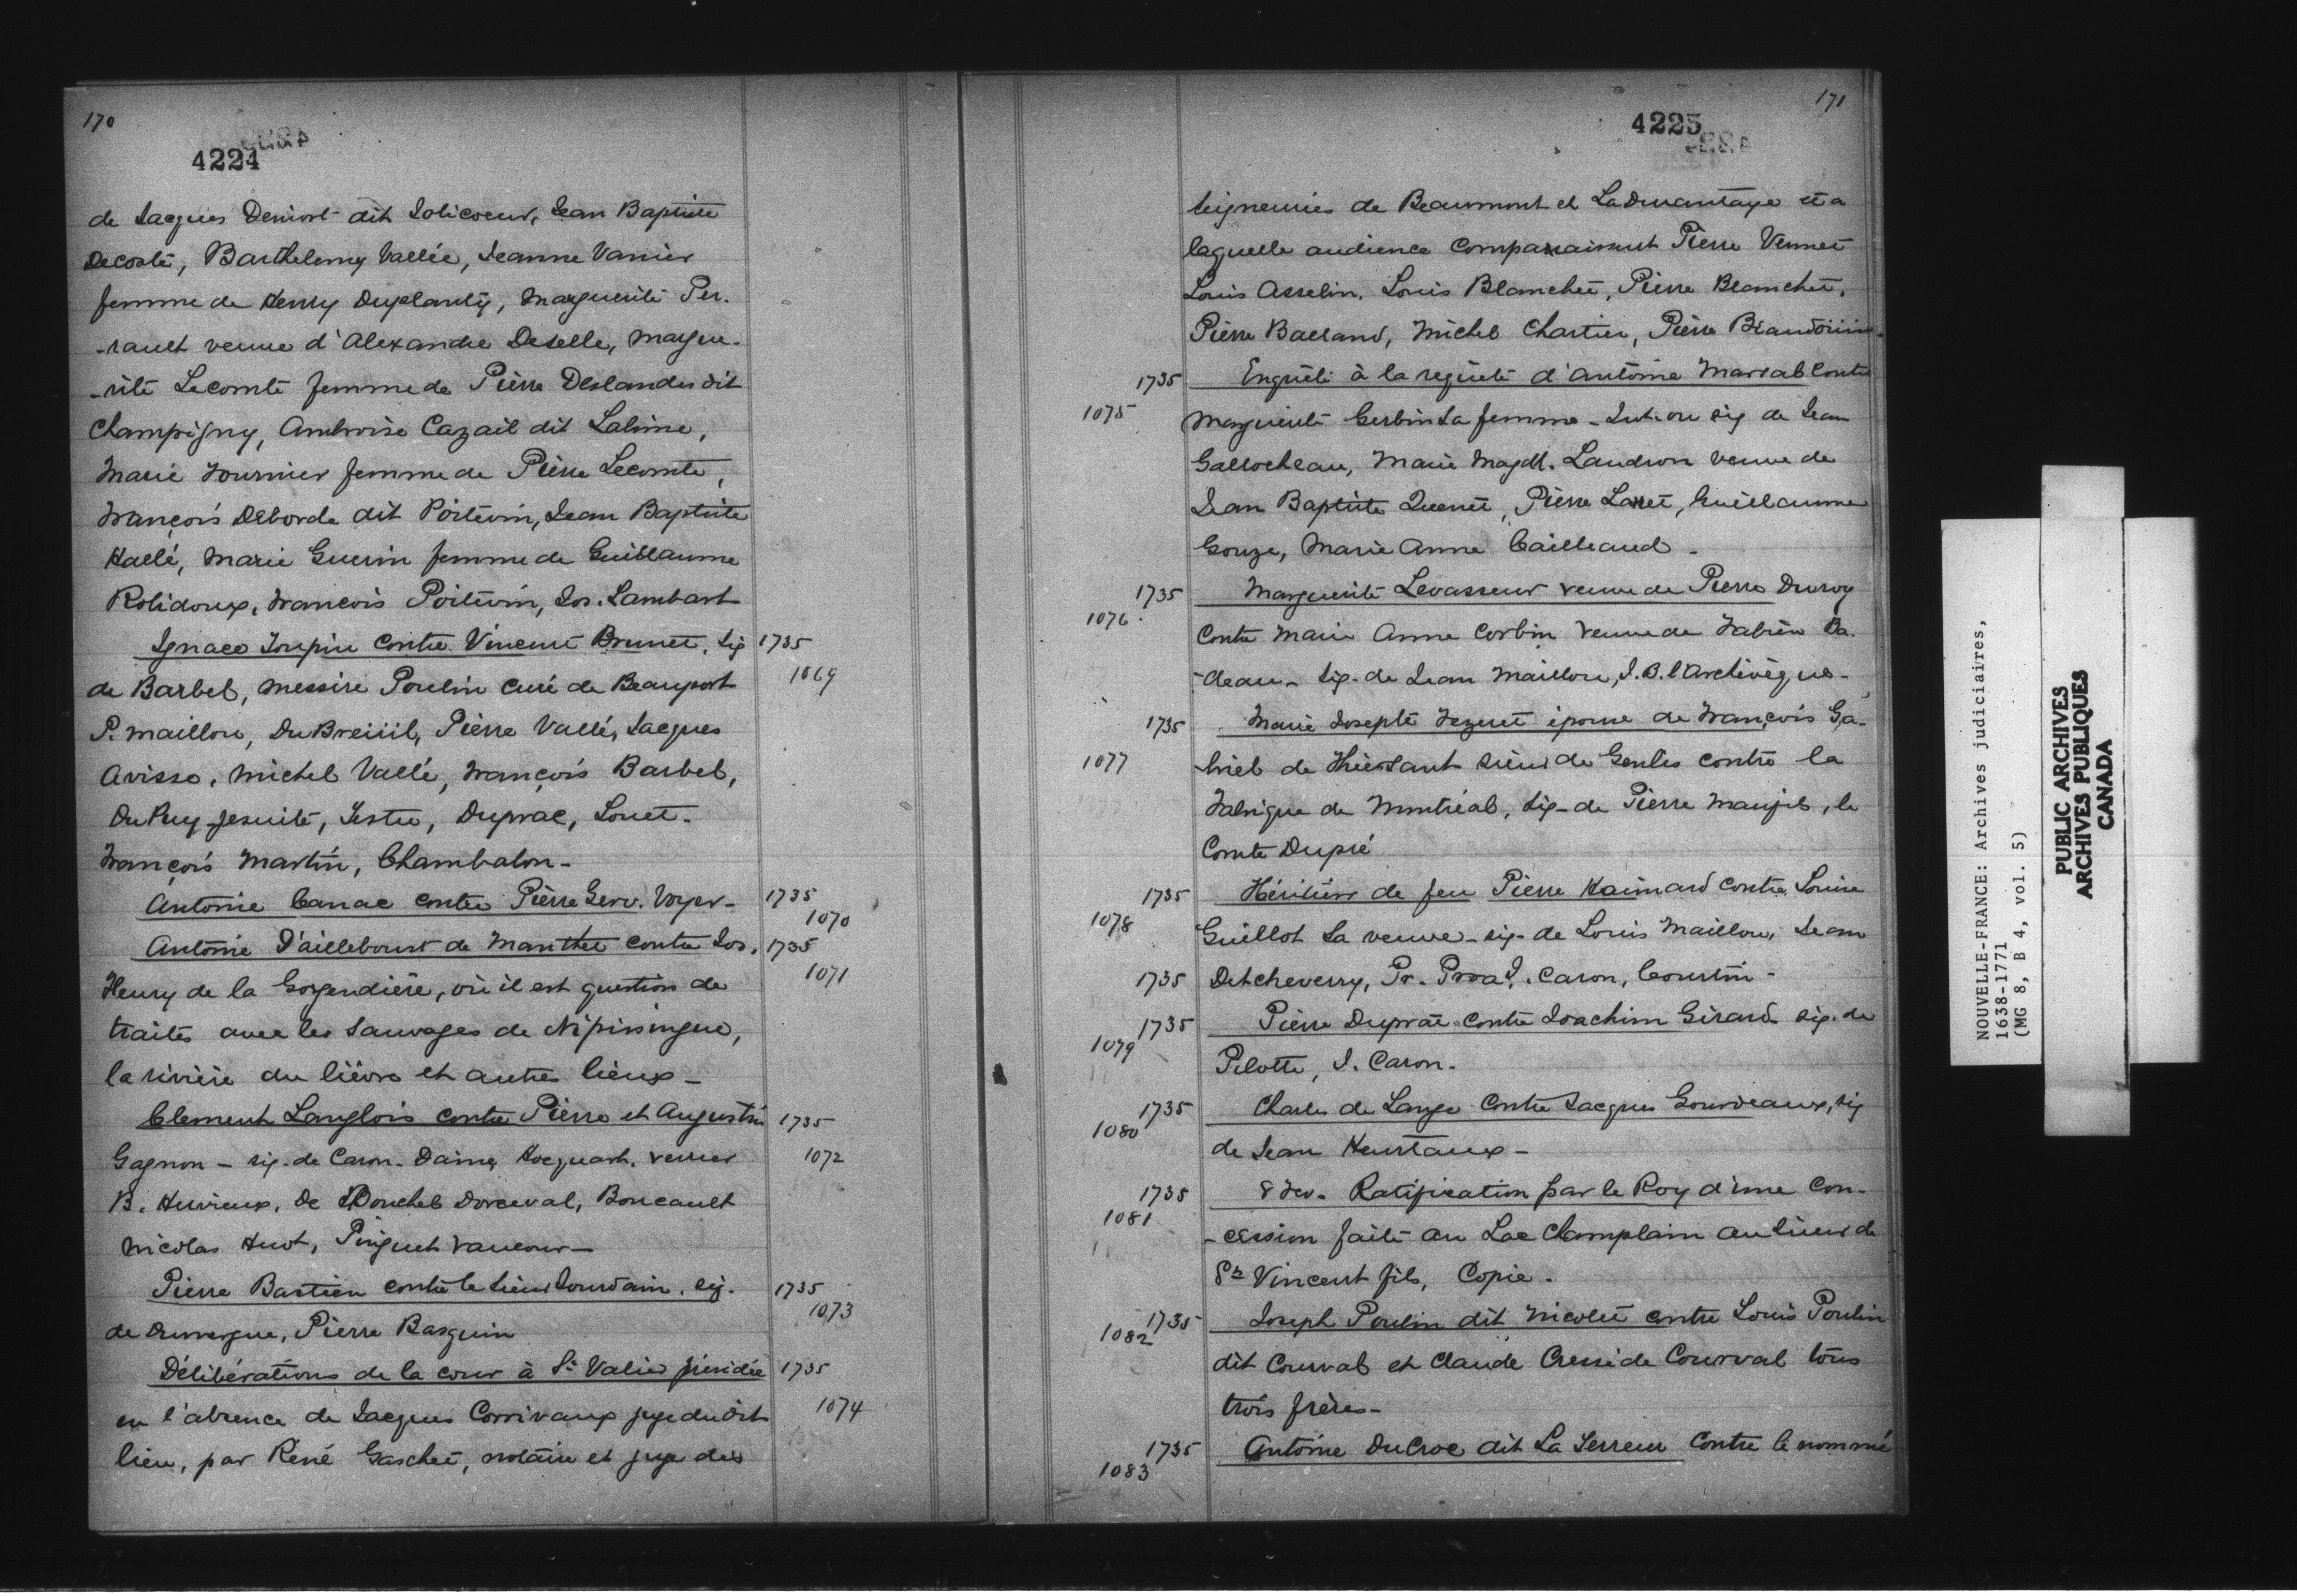 170
4224
de Jacques Deniort dit Jolicoeur, Jean Baptiste
Decosté, Barthelemy Vallée, Jeanne Vanier
femme de Henry Duplanty, Marguerite Per-
-rault veuve d'Alexandre Deselle, Margue-
-rite Lecomte femme de Pierre Deslandes dit
Champigny, Ambroise Cazail dit Lalime,
Marie Fournier femme de Pierre Lecomte,
François Deborde dit Poitevin, Jean Baptiste
Hallé, Marie Guerin femme de Guillaume
Rolidoux, Francois Poitevin, Jos. Lambart
Ignace Toupin contre Vincent Brunet, sig 1735
de Barbel, Messire Poulin curé de Beauport 1069
P. Maillou, DuBreüil, Pierre Vallé, Jacques
Avisse, Michel Vallé, François Barbel,
DuPuy Jesuite, Testu, Duprac, Louet.
François Martin, Chambalon-
Antoine Canac contre Pierre Gerv. Voyer- 1735
1070
Antoine D'ailleboust de Manthet contre Jos. 1735
Fleury de la Gorgendière, où il est question de 1071
traités avec les Sauvages de Nipissingue,
la rivière du lièvre et autres lieux-
Clement Langlois contre Pierre et Augustin 1735
Gagnon - sig. de Caron. Daine, Hocquart, Verrier 1072
B. Hervieux, De Douchel Dorceval, Boucault
Nicolas Huot, Pinguet Vaucour-
Pierre Bastien contre le sieur Jourdain, sig. 1735
1073
de Duvergue, Pierre Basquin
Délibérations de la cour à St Valier présidée 1735
en l'absence de Jacques Corrivaux juge dudit 1074
lieu, par René Gaschet, notaire et juge des
171
4225
seigneuries de Beaumont et Ladurantaye et a
laquelle audience comparaissent Pierre Vennet
Louis Asselin, Louis Blanchet, Pierre Blanchet,
Pierre Balland, Michel Chartier, Pierre Beaudoüin-
1735 Enquête à la requête d'Antoine Marsal contre
1075 Marguerite Gerbin sa femme - sig de Jean
Gallocheau, Marie Magdl. Landron veuve de
Jean Baptiste Quenet, Pierre Larret, Guillaume
Gouze, Marie Anne Cailleaud -
1735 Marguerite Levasseur veuve de Pierre Duroy
1076 Contre Marie Anne Corbin veuve de Fabien Ba-
-deau - sig. de Jean Maillou, J.B. l'Archevêque-
1735 Marie Josephte Fezeret épouse de François Ga-
1077 -briel de Thiersant sieur de Genlis contre la
Fabrique de Montréal, sig- de Pierre Maufils, le
Comte Dupré
1735 Héritiers de feu Pierre Haimard contre Louise
1078 Guillot sa veuve - sig. de Louis Maillou, Jean
1735 Detcheverry, Pr. Prvat, J. Caron, Courtin -
1735 Pierre Duprat contre Joachim Girard sig. de
1079 Pilotte, J. Caron.
1735 Charles de Lange Contre Jacques Gourdeaux, sig
1080 de Jean Heurtaux -
1735 8 Fev. Ratification par le Roy d'une con-
1081 -cession faite au Lac Champlain au sieur de
St Vincent fils, Copie.
1735 Joseph Poulin dit Nicolet contre Louis Poulin
1082
dit Courval et Claude Cressé de Courval tous
trois frères-
1735 Antoine DuCroc dit La Terreur Contre le nommé
1083
NOUVELLE-FRANCE: Archives judiciaires,
1638-1771
(MG 8, B 4, vol. 5)
PUBLIC ARCHIVES
ARCHIVES PUBLIQUES
CANADA